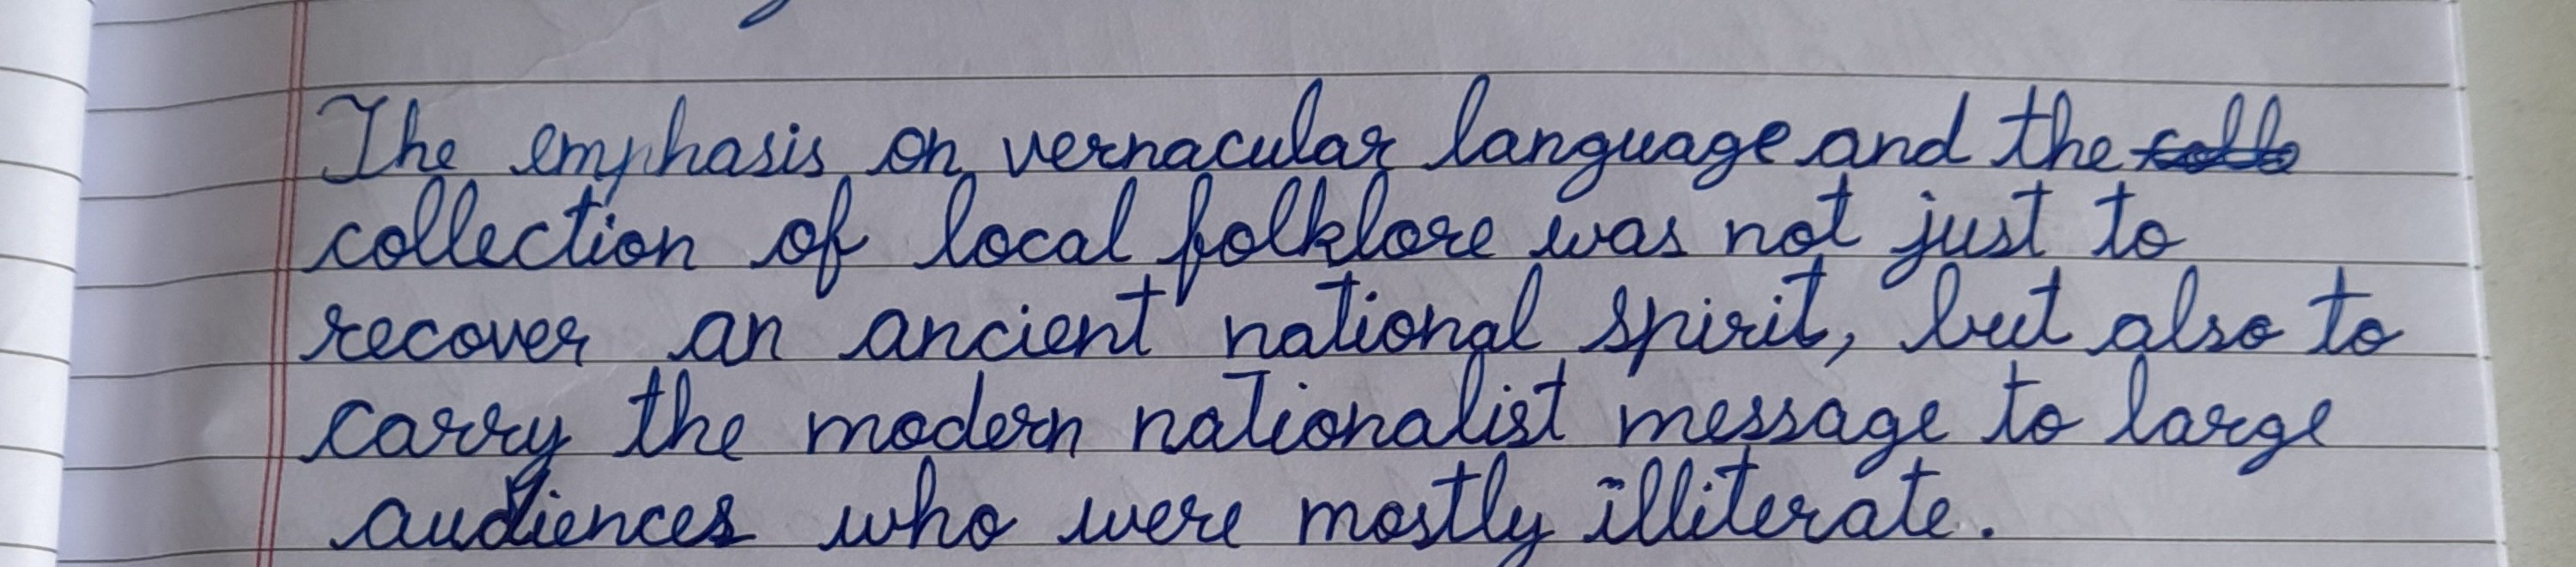 The emphasis on vernacular language and the
collection of local folklore was not just to
recover an ancient national spirit, but also to
carry the modern nationalist message to large
audiences who were mostly illiterate.